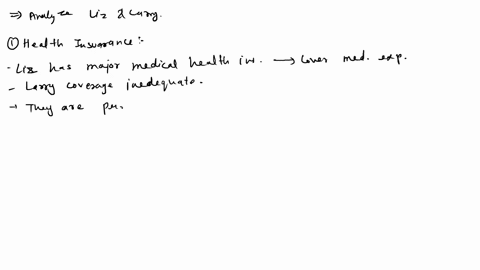 ⇒ Analyze Liz & Larry.
① Health Insurance :-
- Liz has major medical health ins. → Cover med. exp.
- Larry coverage inadequate.
→ They are pu.